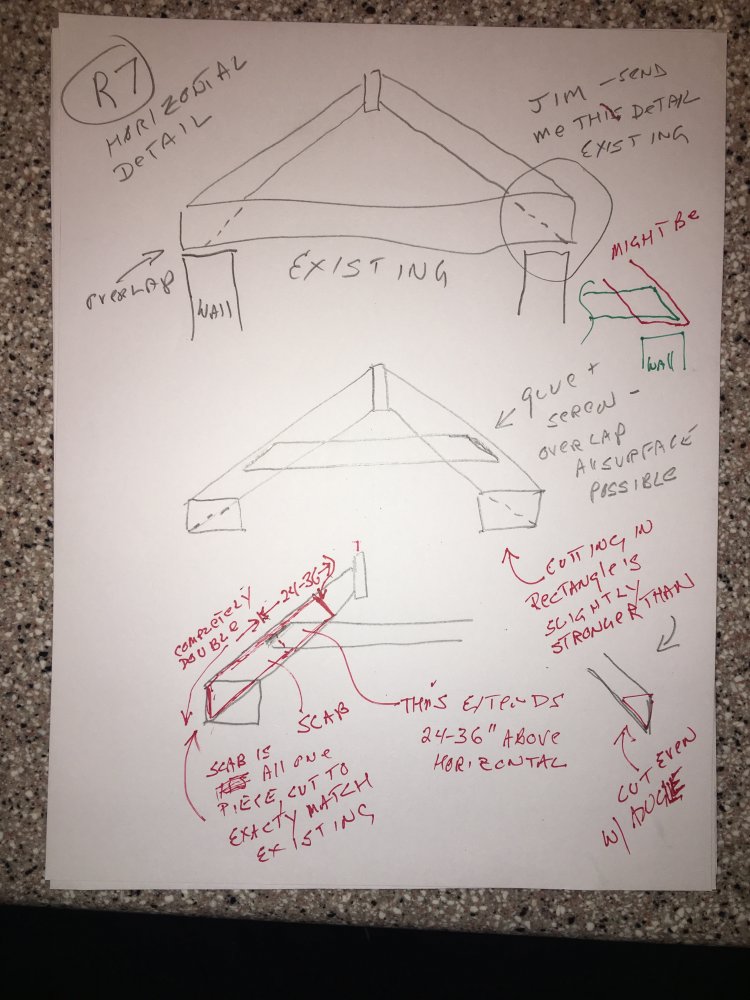 R7
HORIZONTAL
DETAIL
JIM - SEND
ME THIS DETAIL
EXISTING
OVERLAP
WALL
EXISTING
MIGHT BE
WALL
GLUE +
SCREW -
OVERLAP
ALL SURFACE
POSSIBLE
CUTTING IN
RECTANGLE IS
SLIGHTLY
STRONGER THAN
COMPLETELY
DOUBLE
24-36
SCAB
THIS EXTENDS
24-36" ABOVE
HORIZONTAL
SCAB IS
All ONE
PIECE, CUT TO
EXACTY MATCH
EXISTING
CUT EVEN
W/